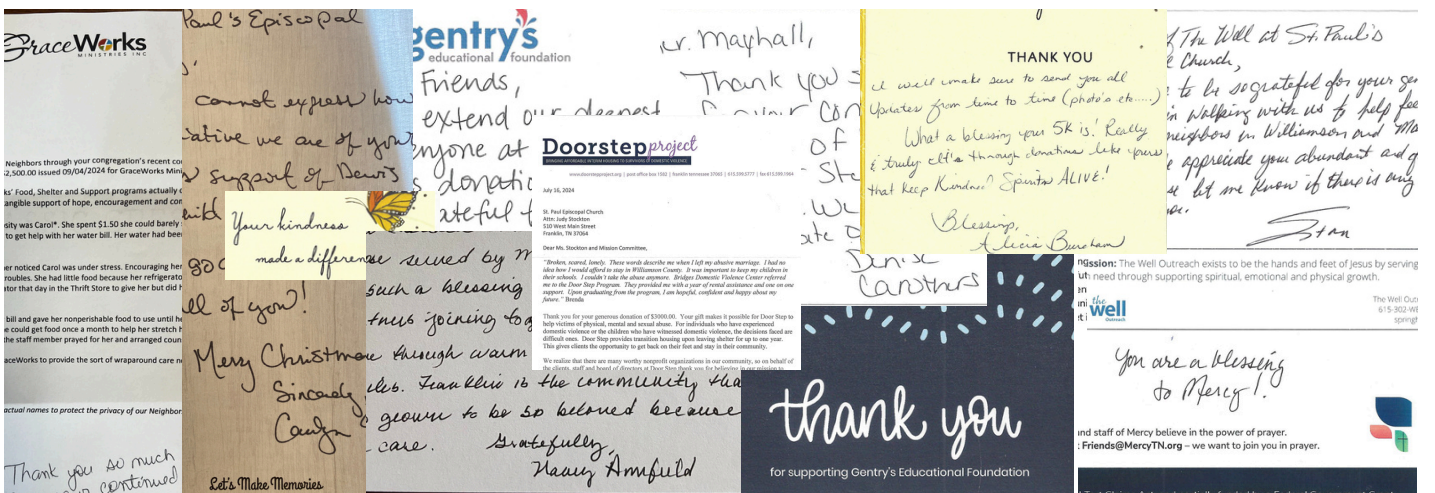 GraceWorks
MINISTRIES INC
Neighbors through your congregation's recent co
2,500.00 issued 09/04/2024 for GraceWorks Mini
ks' Food, Shelter and Support programs actually c
angible support of hope, encouragement and con
sity was Carol*. She spent $1.50 she could barely
to get help with her water bill. Her water had bee
er noticed Carol was under stress. Encouraging her
roubles. She had little food because her refrigerato
ator that day in the Thrift Store to give her but did h
bill and gave her nonperishable food to use until he
e could get food once a month to help her stretch h
the staff member prayed for her and arranged coun
aceWorks to provide the sort of wraparound care n
actual names to protect the privacy of our Neighbor
Thank you so much
continued
Paul's Episcopal
cannot express how
iative we are of your
support of
ll of you!
Merry Christmas
Sincerely
Let's Make Memories
Your kindness
made a difference
gentry's
educational foundation
Friends,
extend our deepest
nyone at
donatio
ateful f
Mayhall,
Thank you
of
Denise
Carothers
Doorstep project
BRINGING AFFORDABLE INTERIM HOUSING TO SURVIVORS OF DOMESTIC VIOLENCE
www.doorstepproject.org | post office box 1502 | franklin tennessee 37065 | 615.599.5777 | fax 615.599.1984
July 16, 2024
St. Paul Episcopal Church
Attn: Judy Stockton
510 West Main Street
Franklin, TN 37064
Dear Ms. Stockton and Mission Committee,
"Broken, scared, lonely. These words describe me when I left my abusive marriage. I had no
idea how I would afford to stay in Williamson County. It was important to keep my children in
their schools. I couldn't take the abuse anymore. Bridges Domestic Violence Center referred
me to the Door Step Program. They provided me with a year of rental assistance and one on one
support. Upon graduating from the program, I am hopeful, confident and happy about my
future." Brenda
Thank you for your generous donation of $3000.00. Your gift makes it possible for Door Step to
help victims of physical, mental and sexual abuse. For individuals who have experienced
domestic violence or the children who have witnessed domestic violence, the decisions faced are
difficult ones. Door Step provides transition housing upon leaving shelter for up to one year.
This gives clients the opportunity to get back on their feet and stay in their community.
We realize that there are many worthy nonprofit organizations in our community, so on behalf of
the clients, staff and board of directors at Door Step thank you for believing in our mission to
se served by m
such a blessing
tnus joining tog
e through warm
les. Franklin is the community tha
grown to be so beloved because
care.
Gratefully,
Nancy Armfield
THANK YOU
I will make sure to send you all
updates from time to time (photo's etc.....)
What a blessing your 5K is! Really
& truly it's through donations like yours
that keep Kindred Spirits ALIVE!
Blessing,
Alicia Burnham
f The Well at St. Paul's
e Church,
to be so grateful for your ge
in walking with us to help fee
neighbors in Williamson and Ma
e appreciate your abundant and g
se let me know if there is any
Stan
ission: The Well Outreach exists to be the hands and feet of Jesus by serving
need through supporting spiritual, emotional and physical growth.
the well
Outreach
The Well Out
615-302-WE
springh
You are a blessing
to Mercy!
nd staff of Mercy believe in the power of prayer.
Friends@MercyTN.org – we want to join you in prayer.
thank you
for supporting Gentry's Educational Foundation